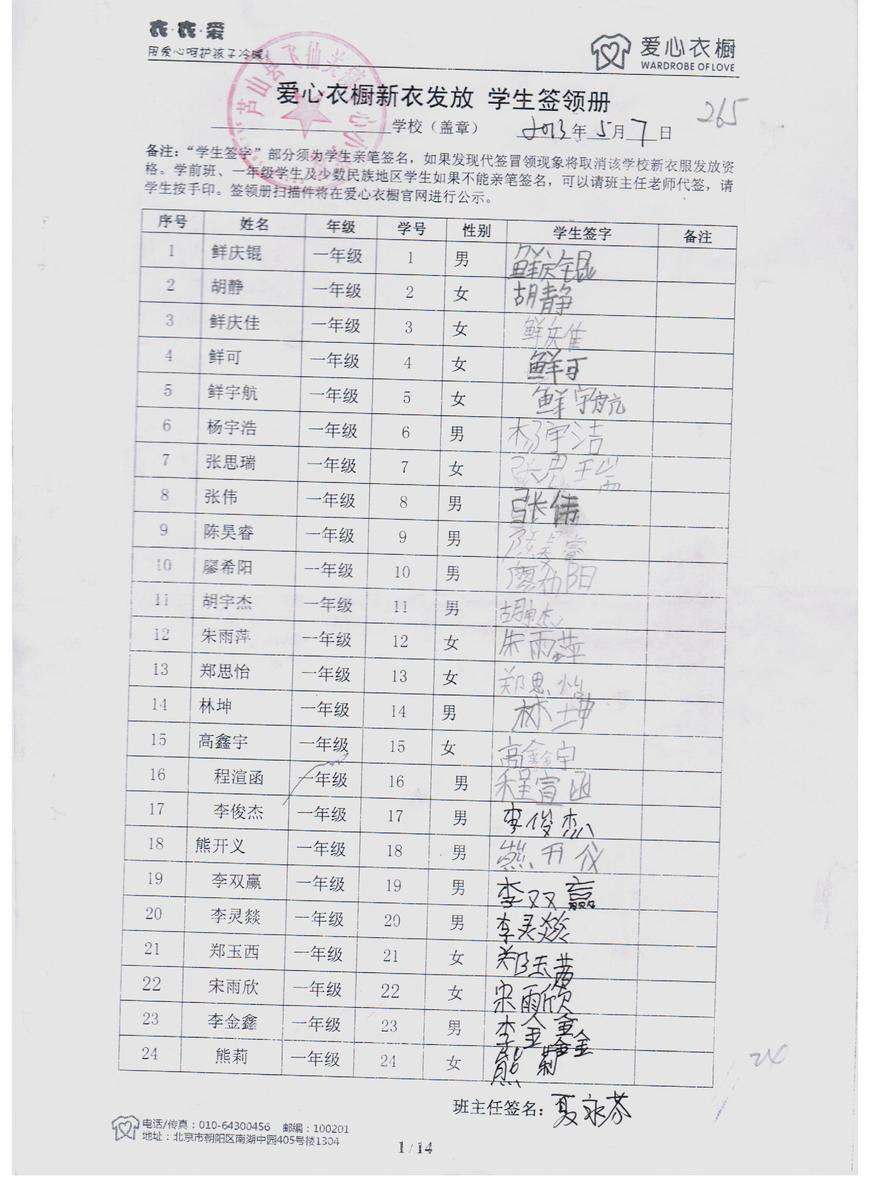 衣·衣·爱
用爱心呵护孩子冷暖！
爱心衣橱
WARDROBE OF LOVE
芦山县飞仙关镇中心
爱心衣橱新衣发放 学生签领册
265
学校（盖章） 2013年5月7日
备注：“学生签字”部分须为学生亲笔签名，如果发现代签冒领现象将取消该学校新衣服发放资
格。学前班、一年级学生及少数民族地区学生如果不能亲笔签名，可以请班主任老师代签，请
学生按手印。签领册扫描件将在爱心衣橱官网进行公示。
序号 姓名 年级 学号 性别 学生签字 备注
1 鲜庆锟 一年级 1 男 鲜庆锟
2 胡静 一年级 2 女 胡静
3 鲜庆佳 一年级 3 女 鲜庆佳
4 鲜可 一年级 4 女 鲜可
5 鲜宇航 一年级 5 女 鲜宇航
6 杨宇浩 一年级 6 男 杨宇洁
7 张思瑞 一年级 7 女 张思瑞
8 张伟 一年级 8 男 张伟
9 陈昊睿 一年级 9 男 陈昊睿
10 廖希阳 一年级 10 男 廖希阳
11 胡宇杰 一年级 11 男 胡宇杰
12 朱雨萍 一年级 12 女 朱雨萍
13 郑思怡 一年级 13 女 郑思怡
14 林坤 一年级 14 男 林坤
15 高鑫宇 一年级 15 女 高鑫宇
16 程渲函 一年级 16 男 程宣函
17 李俊杰 一年级 17 男 李俊杰
18 熊开义 一年级 18 男 熊开仪
19 李双赢 一年级 19 男 李双赢
20 李灵燚 一年级 20 男 李灵燚
21 郑玉西 一年级 21 女 郑玉茜
22 宋雨欣 一年级 22 女 宋雨欣
23 李金鑫 一年级 23 男 李金鑫
24 熊莉 一年级 24 女 熊莉
班主任签名：聂永芬
电话/传真：010-64300456 邮编：100201
地址：北京市朝阳区南湖中园405号楼1304
1/14